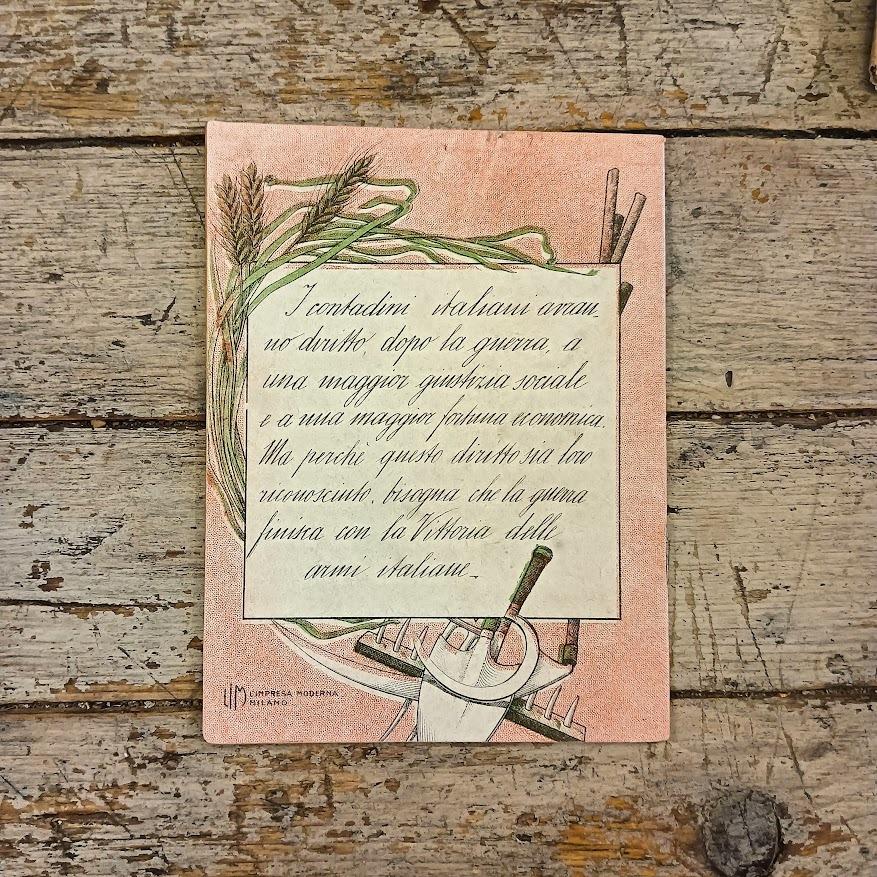 I contadini italiani avran_
no diritto, dopo la guerra, a
una maggior giustizia sociale
e a una maggior fortuna economica.
Ma perchè questo diritto sia loro
riconosciuto, bisogna che la guerra
finisca con la Vittoria delle
armi italiane_
LIM L'IMPRESA MODERNA
MILANO